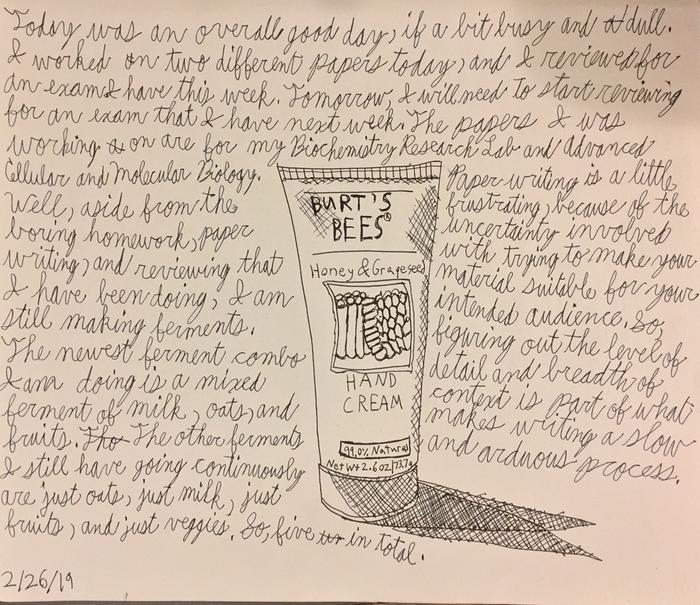 Today was an overall good day, if a bit busy and dull.
I worked on two different papers today, and I reviewed for
an exam I have this week. Tomorrow, I will need to start reviewing
for an exam that I have next week. The papers I was
working on are for my Biochemistry Research Lab and Advanced
Cellular and Molecular Biology.
Well, aside from the
boring homework, paper
writing, and reviewing that
I have been doing, I am
still making ferments.
The newest ferment combo
I am doing is a mixed
ferment of milk, oats, and
fruits. The The other ferments
I still have going continuously
are just oats, just milk, just
fruits, and just veggies. So, five in total.
Paper writing is a little
frustrating, because of the
uncertainty involved
with trying to make your
material suitable for your
intended audience. So,
figuring out the level of
detail and breadth of
context is part of what
makes writing a slow
and arduous process.
BURT'S
BEES®
Honey & Grapeseed
HAND
CREAM
99.0% Natural
Net Wt 2.6 oz/73.7g
2/26/19